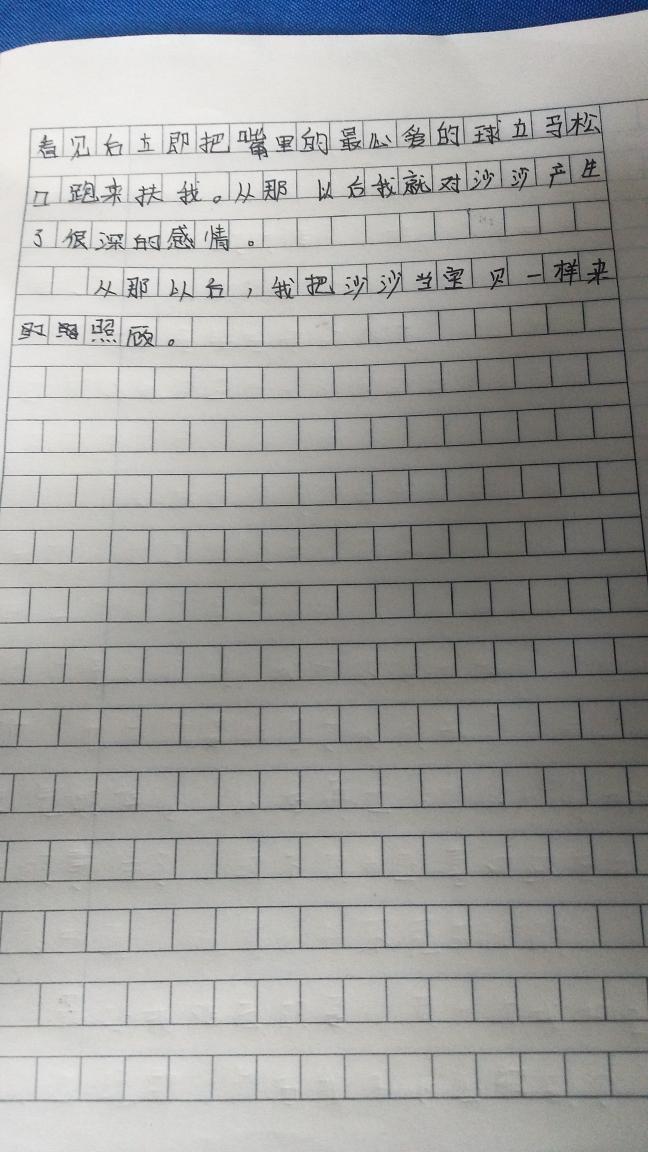 看见后立即把嘴里的最心爱的球立马松
口跑来扶我。从那以后我就对沙沙产生
了很深的感情。
从那以后，我把沙沙当宝贝一样来
照顾。